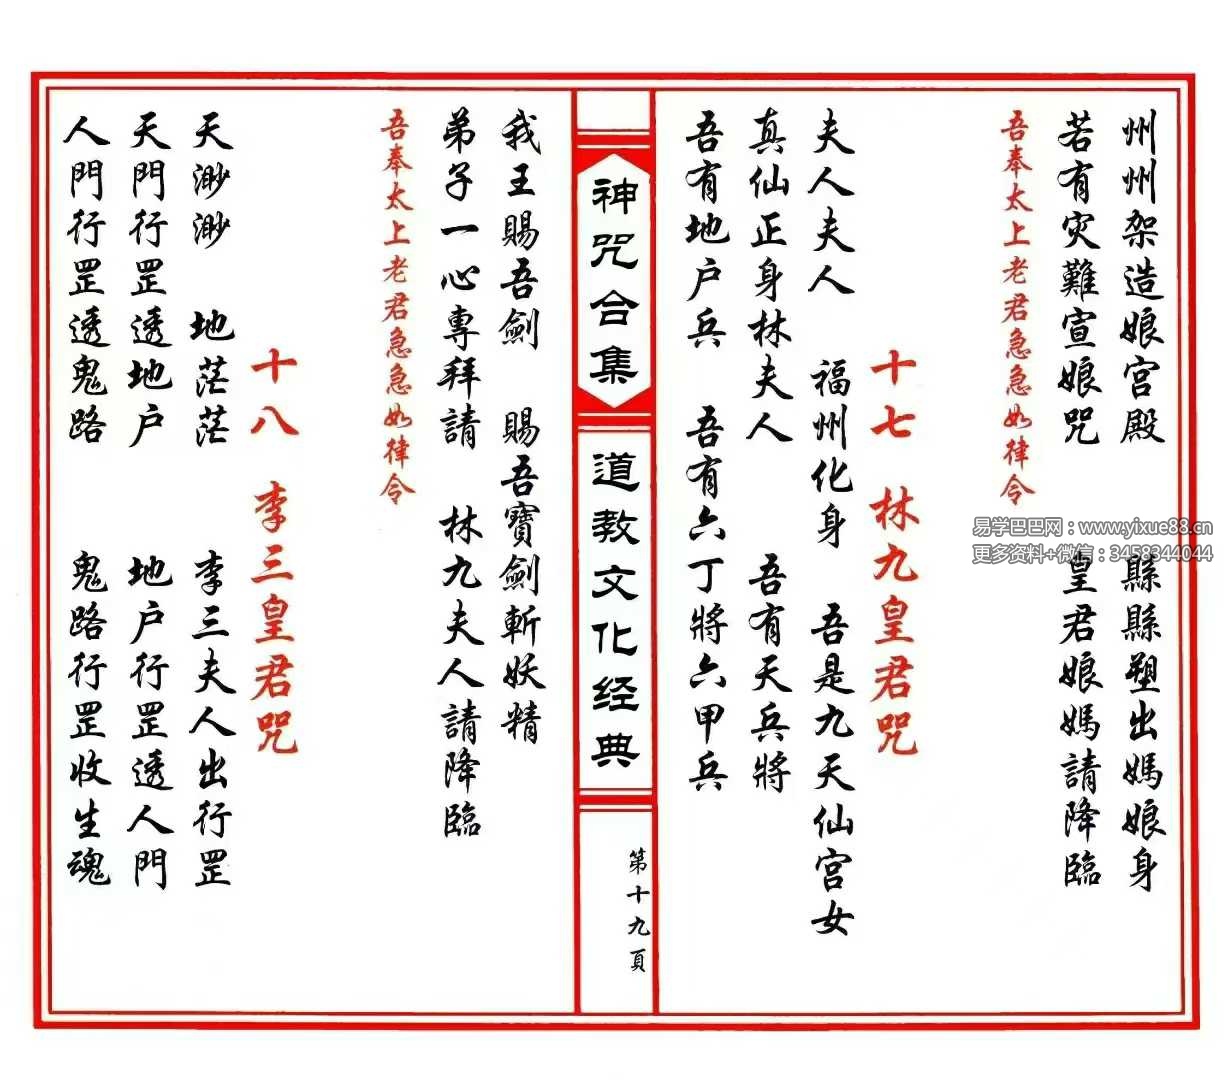 州州架造娘宫殿 縣縣塑出媽娘身
若有灾難宣娘咒 皇君娘媽請降臨
吾奉太上老君急急如律令
十七 林九皇君咒
夫人夫人 福州化身 吾是九天仙宫女
真仙正身林夫人 吾有天兵將
吾有地户兵 吾有六丁將六甲兵
神咒合集
道教文化经典
第十九頁
我王賜吾劍 賜吾寶劍斬妖精
弟子一心專拜請 林九夫人請降臨
吾奉太上老君急急如律令
十八 李三皇君咒
天渺渺 地茫茫 李三夫人出行罡
天門行罡透地户 地户行罡透人門
人門行罡透鬼路 鬼路行罡收生魂
易学巴巴网：www.yixue88.cn
更多资料+微信：3458344044